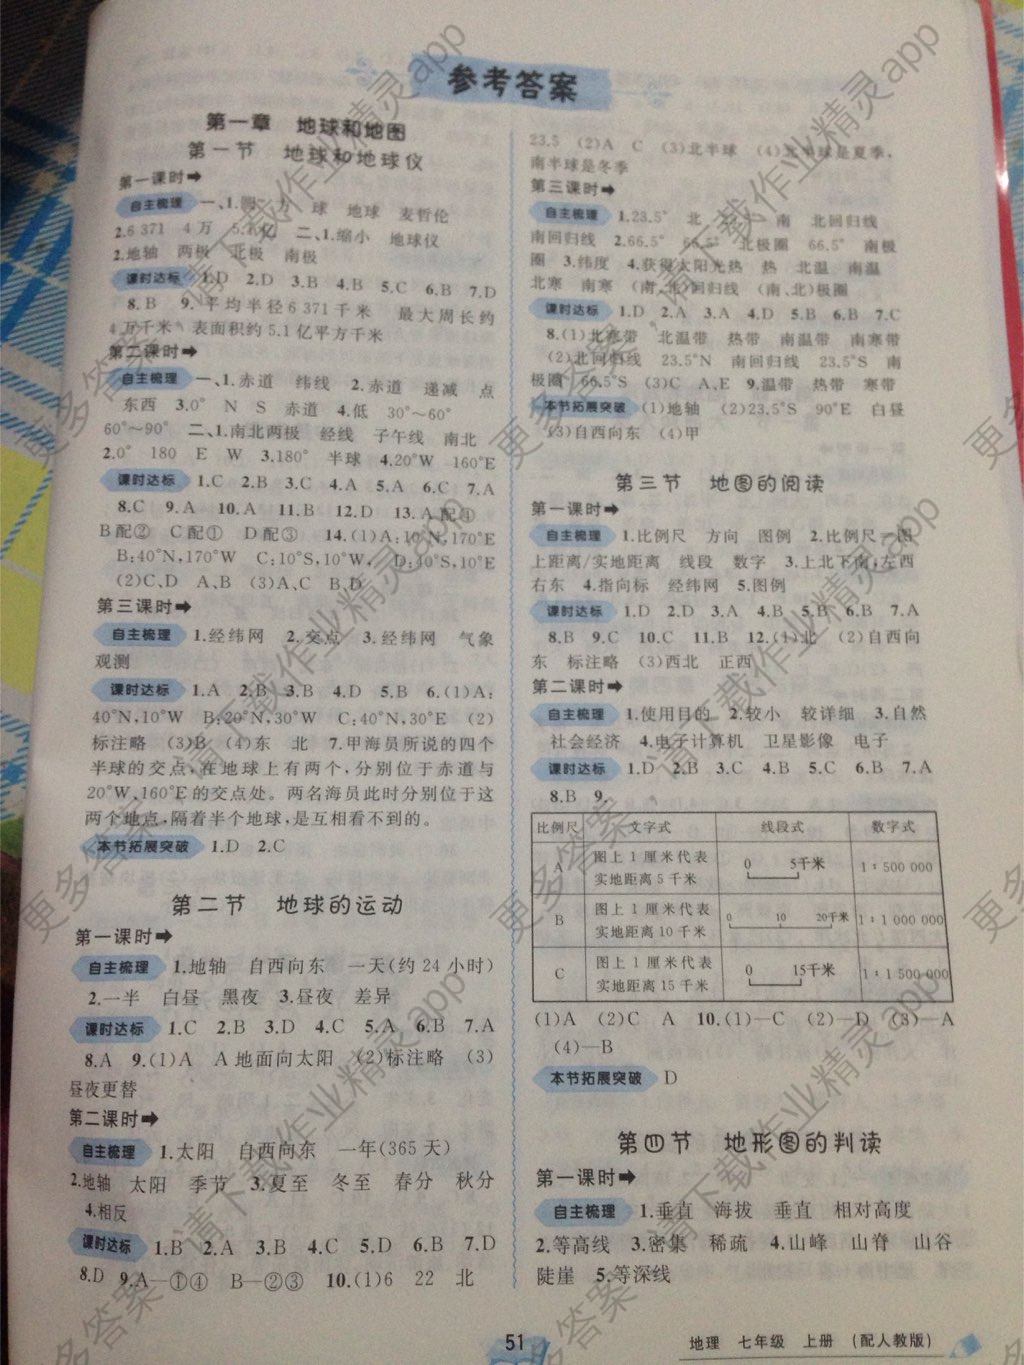 参考答案
第一章　地球和地图
第一节　地球和地球仪
第一课时➡
自主梳理 一、1.圆　方　球　地球　麦哲伦
2.6 371　4万　5.1亿　二、1.缩小　地球仪
2.地轴　两极　北极　南极
课时达标 1.D　2.D　3.B　4.B　5.C　6.B　7.D
8.B　9.平均半径6 371千米　最大周长约
4万千米　表面积约5.1亿平方千米
第二课时➡
自主梳理 一、1.赤道　纬线　2.赤道　递减　点
东西　3.0°　N　S　赤道　4.低　30°～60°
60°～90°　二、1.南北两极　经线　子午线　南北
2.0°　180　E　W　3.180°　半球　4.20°W　160°E
课时达标 1.C　2.B　3.C　4.A　5.A　6.C　7.A
8.C　9.A　10.A　11.B　12.D　13.A配④
B配②　C配①　D配③　14.(1)A:10°N,170°E
B:40°N,170°W　C:10°S,10°W　D:40°S,10°E
(2)C、D　A、B　(3)A、C　B、D
第三课时➡
自主梳理 1.经纬网　2.交点　3.经纬网　气象
观测
课时达标 1.A　2.B　3.B　4.D　5.B　6.(1)A:
40°N,10°W　B:20°N,30°W　C:40°N,30°E　(2)
标注略　(3)B　(4)东　北　7.甲海员所说的四个
半球的交点,在地球上有两个,分别位于赤道与
20°W、160°E的交点处。两名海员此时分别位于这
两个地点,隔着半个地球,是互相看不到的。
本节拓展突破 1.D　2.C
第二节　地球的运动
第一课时➡
自主梳理 1.地轴　自西向东　一天(约24小时)
2.一半　白昼　黑夜　3.昼夜　差异
课时达标 1.C　2.B　3.D　4.C　5.A　6.B　7.A
8.A　9.(1)A　A地面向太阳　(2)标注略　(3)
昼夜更替
第二课时➡
自主梳理 1.太阳　自西向东　一年(365天)
2.地轴　太阳　季节　3.夏至　冬至　春分　秋分
4.相反
课时达标 1.B　2.A　3.B　4.C　5.D　6.B　7.D
8.D　9.A—①④　B—②③　10.(1)6　22　北
23.5　(2)A　C　(3)北半球　(4)北半球是夏季,
南半球是冬季
第三课时➡
自主梳理 1.23.5°　北　南　北回归线
南回归线　2.66.5°　66.5°　北极圈　66.5°　南极
圈　3.纬度　4.获得太阳光热　热　北温　南温
北寒　南寒　(南、北)回归线　(南、北)极圈
课时达标 1.D　2.A　3.A　4.D　5.B　6.B　7.C
8.(1)北寒带　北温带　热带　南温带　南寒带
(2)北回归线　23.5°N　南回归线　23.5°S　南
极圈　66.5°S　(3)C　A、E　9.温带　热带　寒带
本节拓展突破 (1)地轴　(2)23.5°S　90°E　白昼
(3)自西向东　(4)甲
第三节　地图的阅读
第一课时➡
自主梳理 1.比例尺　方向　图例　2.比例尺=图
上距离/实地距离　线段　数字　3.上北下南,左西
右东　4.指向标　经纬网　5.图例
课时达标 1.D　2.D　3.A　4.B　5.B　6.B　7.A
8.B　9.C　10.C　11.B　12.(1)北　(2)自西向
东　标注略　(3)西北　正西
第二课时➡
自主梳理 1.使用目的　2.较小　较详细　3.自然
社会经济　4.电子计算机　卫星影像　电子
课时达标 1.D　2.B　3.C　4.C　5.B　6.B　7.A
8.B　9.
比例尺　文字式　线段式　数字式
A　图上1厘米代表实地距离5千米　0　5千米　1∶500 000
B　图上1厘米代表实地距离10千米　0　10　20千米　1∶1 000 000
C　图上1厘米代表实地距离15千米　0　15千米　1∶1 500 000
(1)A　(2)C　A　10.(1)—C　(2)—D　(3)—A
(4)—B
本节拓展突破 D
第四节　地形图的判读
第一课时➡
自主梳理 1.垂直　海拔　垂直　相对高度
2.等高线　3.密集　稀疏　4.山峰　山脊　山谷
陡崖　5.等深线
51
地理　七年级　上册　(配人教版)
更多答案　请下载作业精灵app